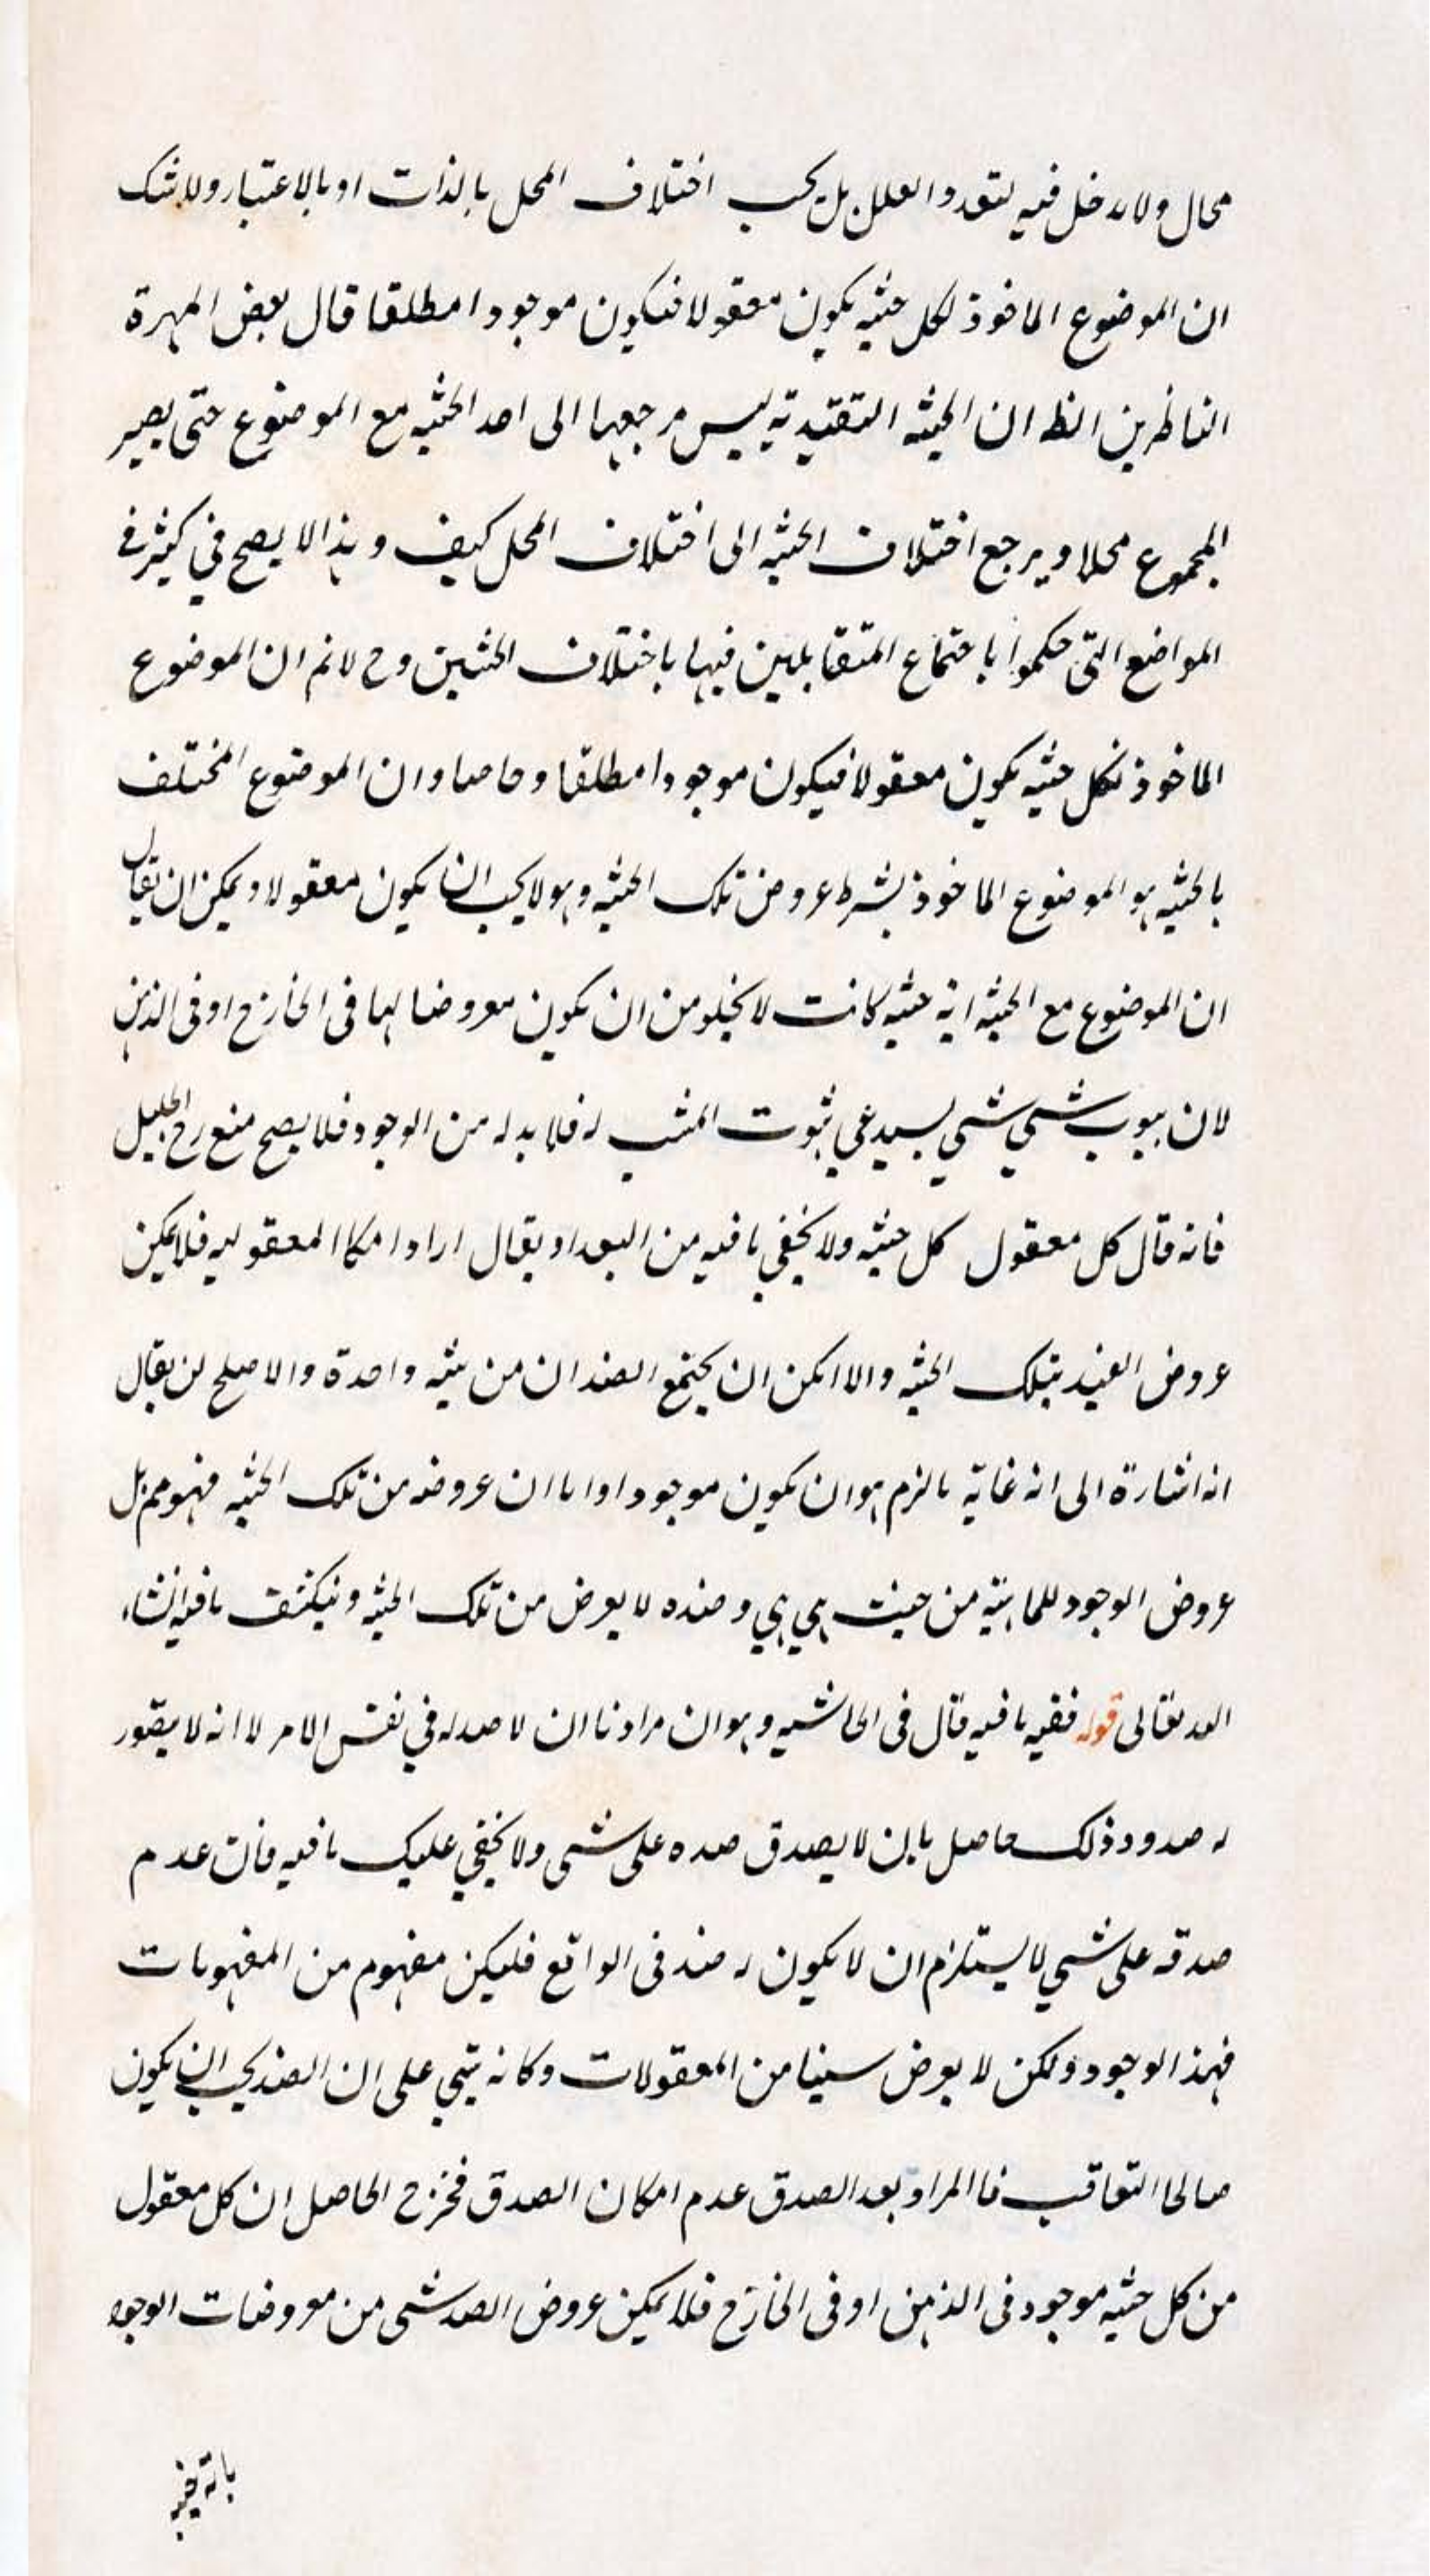 محال ولا يدخل فيه لتعدد العلل بل يجب اختلاف المحل بالذات او بالاعتبار ولا شك
ان الموضوع الماخوذ لكل حثيه يكون معقولا فيكون موجودا مطلقا قال بعض المهرة
الناظرين الظ ان الحيثيه التقييدية ليس مرجعها الى احد الحثيه مع الموضوع حتى يصير
المجموع محلا ويرجع اختلاف الحثيه الى اختلاف المحل كيف وهذا لا يصح في كثير في
المواضع التى حكموا باجتماع المتقابلين فيها باختلاف الحثيين وح لا نم ان الموضوع
الماخوذ لكل حثيه يكون معقولا فيكون موجودا مطلقا وحاصلا وان الموضوع المختلف
بالحثيه هو الموضوع الماخوذ بشرط عروض تلك الحثيه وهو لا يجب ان يكون معقولا ويمكن ان يقال
ان الموضوع مع الحثيه اية حثيه كانت لا يخلو من ان يكون معروضا لها فى الخارج او فى الذهن
لان ثبوت شي شي يستدعي ثبوت المثبت له فلا بد له من الوجود فلا يصح منع الجليل
فانه قال كل معقول كل حثيه ولا يخفي ما فيه من البعد او يقال اراد امكا المعقوليه فلا يمكن
عروض الضد بتلك الحثيه والا امكن ان يجتمع الضدان من حثيه واحدة والاصلح ان يقال
انه اشارة الى انه غاية ما لزم هو ان يكون موجودا واما ان عروضه من تلك الحثيه فهو مم بل
عروض الوجود للماهية من حيث هي هي وضده لا يعرض من تلك الحثيه وينكشف ما فيه انشاء
الله تعالى قوله ففيه ما فيه قال فى الحاشيه وهو ان مرادنا ان لا ضد له في نفس الامر لا انه لا يتصور
له ضد وذلك حاصل بان لا يصدق ضده على شى ولا يخفي عليك ما فيه فان عدم
صدقه على شي لا يستلزم ان لا يكون له ضد فى الواقع فليكن مفهوم من المفهومات
فهذا الوجود ولكن لا يعرض شيئا من المعقولات وكانه يبتني على ان الضد يجب ان يكون
صالحا التعاقب فا المراد بعد الصدق عدم امكان الصدق فخرج الحاصل ان كل معقول
من كل حثيه موجود فى الذهن او فى الخارج فلا يمكن عروض الضد شى من معروضات الوجود